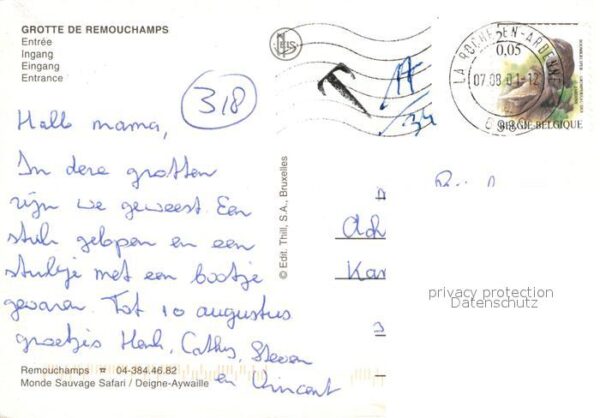 GROTTE DE REMOUCHAMPS
Entrée
Ingang
Eingang
Entrance
318
Hallo mama,
In deze grotten
zijn we geweest. Een
stuk gelopen en een
stukje met een bootje
gevaren. Tot 10 augustus
groetjes Henk, Cathy, Steven
en Vincent
Remouchamps ☎ 04-384.46.82
Monde Sauvage Safari / Deigne-Aywaille
© Edit. Thill, S.A., Bruxelles
T
LA ROCHE-EN-ARDENNE
07.08.01-12
0,05
BELGIE BELGIQUE
Ach
Kar
privacy protection
Datenschutz